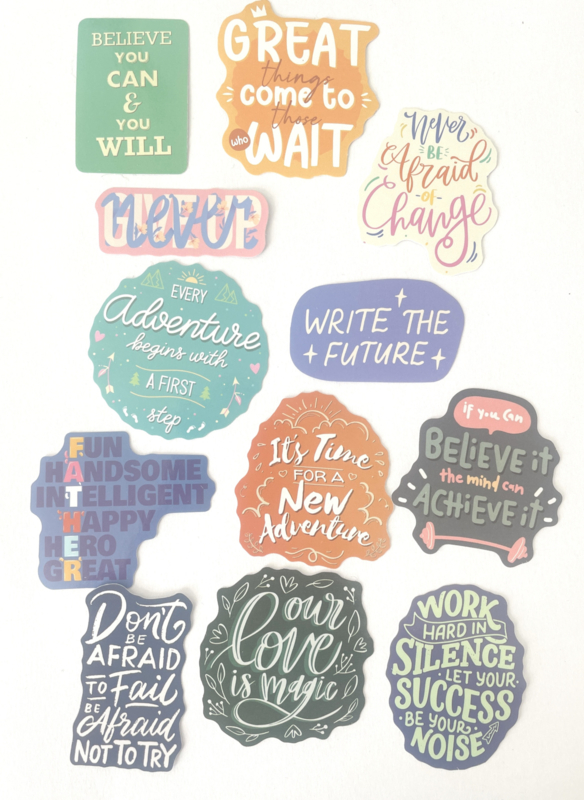 BELIEVE
YOU
CAN
&
YOU
WILL
GREAT
things
come to
those
who
WAIT
Never
BE
Afraid
-OF-
Change
never
GIVE UP
EVERY
Adventure
begins with
A FIRST
step
WRITE THE
FUTURE
FUN
HANDSOME
INTELLIGENT
HAPPY
HERO
GREAT
It's Time
FOR A
New
Adventure
if you can
BELiEVE it
the mind can
ACHiEVE it
Don't
BE
AFRAID
TO Fail
BE
Afraid
NOT TO TRY
our
love
is magic
WORK
HARD IN
SILENCE
LET YOUR
SUCCESS
BE YOUR
NOISE